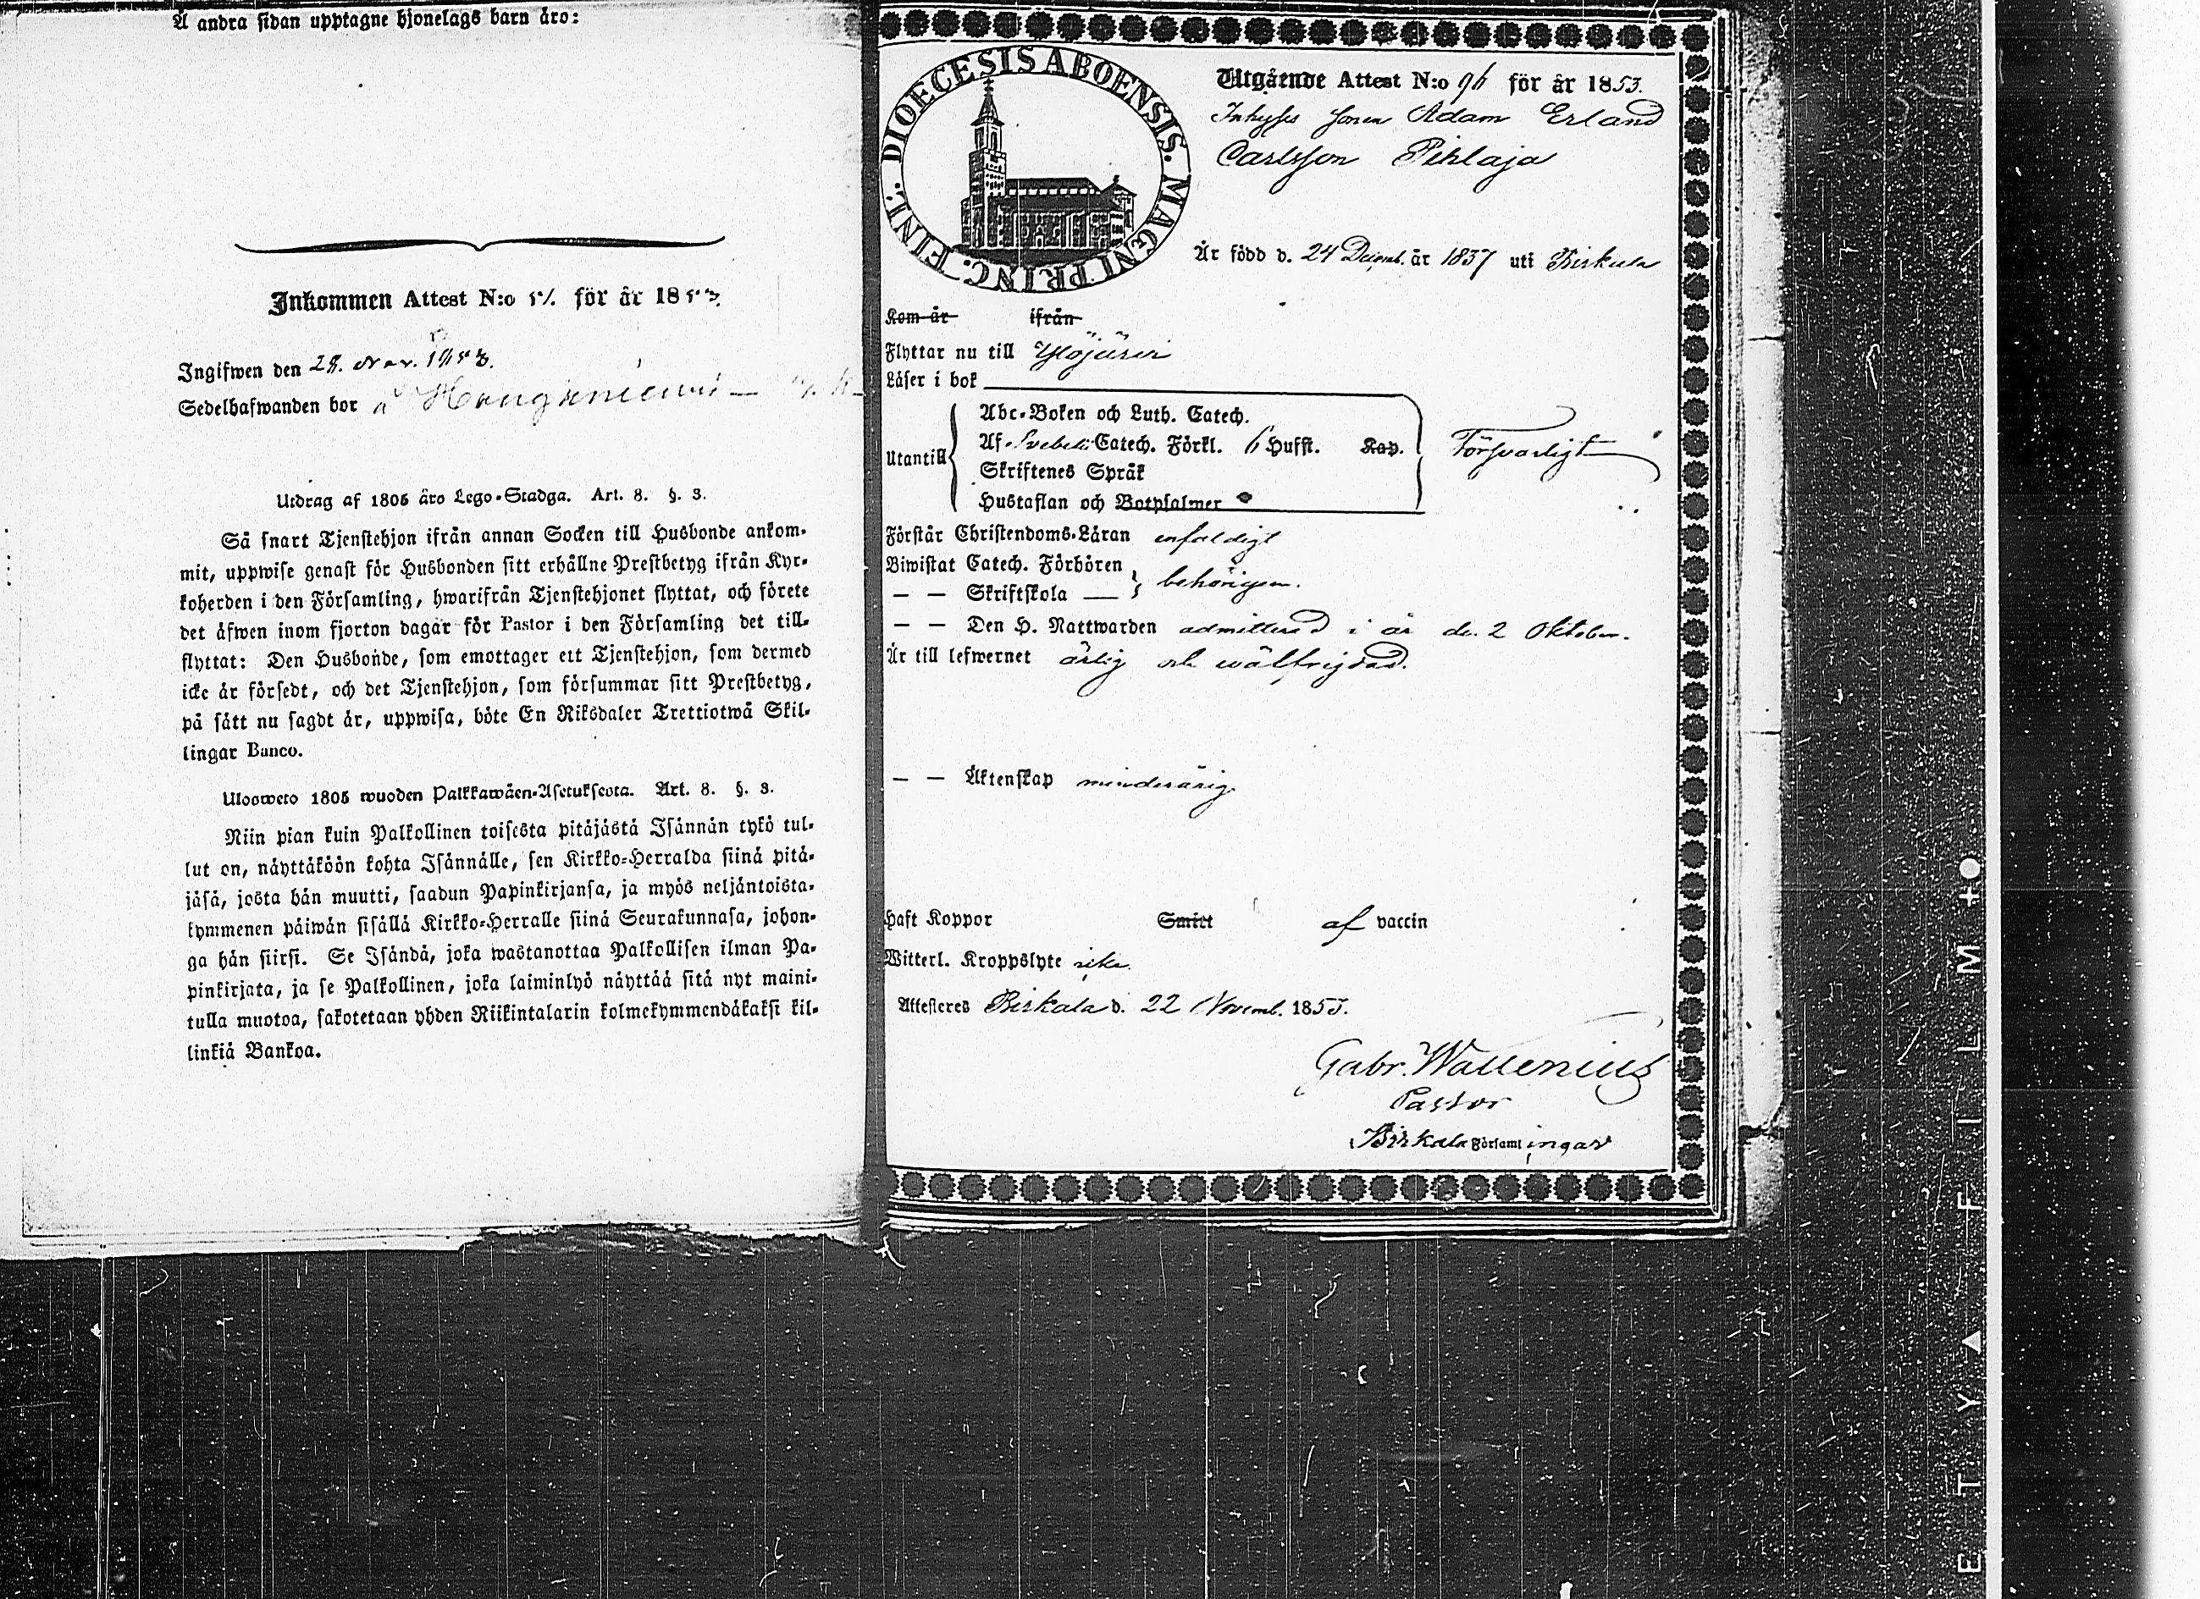 Å andra sidan upptagne hjonelags barn äro:
Inkommen Attest N:o för år 1853.
Ingifwen den 28. Nov. 1853.
Sedelhafwanden bor å
Utdrag af 1805 åro Lego-Stadga. Art. 8. §. 3.
Så snart Tjenstehjon ifrån annan Socken till Husbonde ankom-
mit, uppwise genast för Husbonden sitt erhållne Prestbetyg ifrån Kyr-
koherden i den Församling, hwarifrån Tjenstehjonet flyttat, och förete
det äfwen inom fjorton dagar för Pastor i den Församling det till-
flyttat: Den Husbonde, som emottager ett Tjenstehjon, som dermed
icke är försedt, och det Tjenstehjon, som försummar sitt Prestbetyg,
på sätt nu sagdt är, uppwisa, böte En Riksdaler Trettiotwå Skil-
lingar Banco.
Ulosweto 1805 wuoden Palkkawäen-Asetuksesta. Art. 8. §. 3.
Niin pian kuin Palkollinen toisesta pitäjästä Isännän tykö tul-
lut on, näyttäköön kohta Isännälle, sen Kirkko-Herralda siinä pitä-
jäsä, josta hän muutti, saadun Papinkirjansa, ja myös neljäntoista-
kymmenen päiwän sisällä Kirkko-Herralle siinä Seurakunnasa, johon-
ga hän siirsi. Se Isändä, joka wastanottaa Palkollisen ilman Pa-
pinkirjata, ja se Palkollinen, joka laiminlyö näyttää sitä nyt maini-
tulla muotoa, sakotetaan yhden Riikintalarin kolmekymmendäkaksi kil-
linkiä Bankoa.
DIOECESIS ABOENSIS. MAGNI PRINC. FINL.
Utgående Attest N:o 96 för år 1853.
Inhyses sonen Adam Erland
Carlsson Pihlaja
Är född d. 24 Decemb. år 1837 uti Birkala
Kom år ifrån
Flyttar nu till Ylöjärvi
Läser i bok
Utantill
Abc-Boken och Luth. Catech.
Af Svebelii Catech. Förkl. 6 Hufst. Kap.
Skriftenes Språk
Hustaflan och Botpsalmer
Försvarligt
Förstår Christendoms-Läran enfaldigt
Biwistat Catech. Förhören
— — Skriftskola — behörigen.
— — Den H. Nattwarden admitterad i år d. 2 Oktober.
Är till lefwernet ärlig och wälfrejdad.
— — Äktenskap minderårig.
Haft Koppor Smitt af vaccin
Witterl. Kroppslyte icke.
Attesteres Birkala d. 22 Novemb. 1853.
Gabr. Wallenius
Pastor
Birkala Församlingar
ETY ▲ FILM +